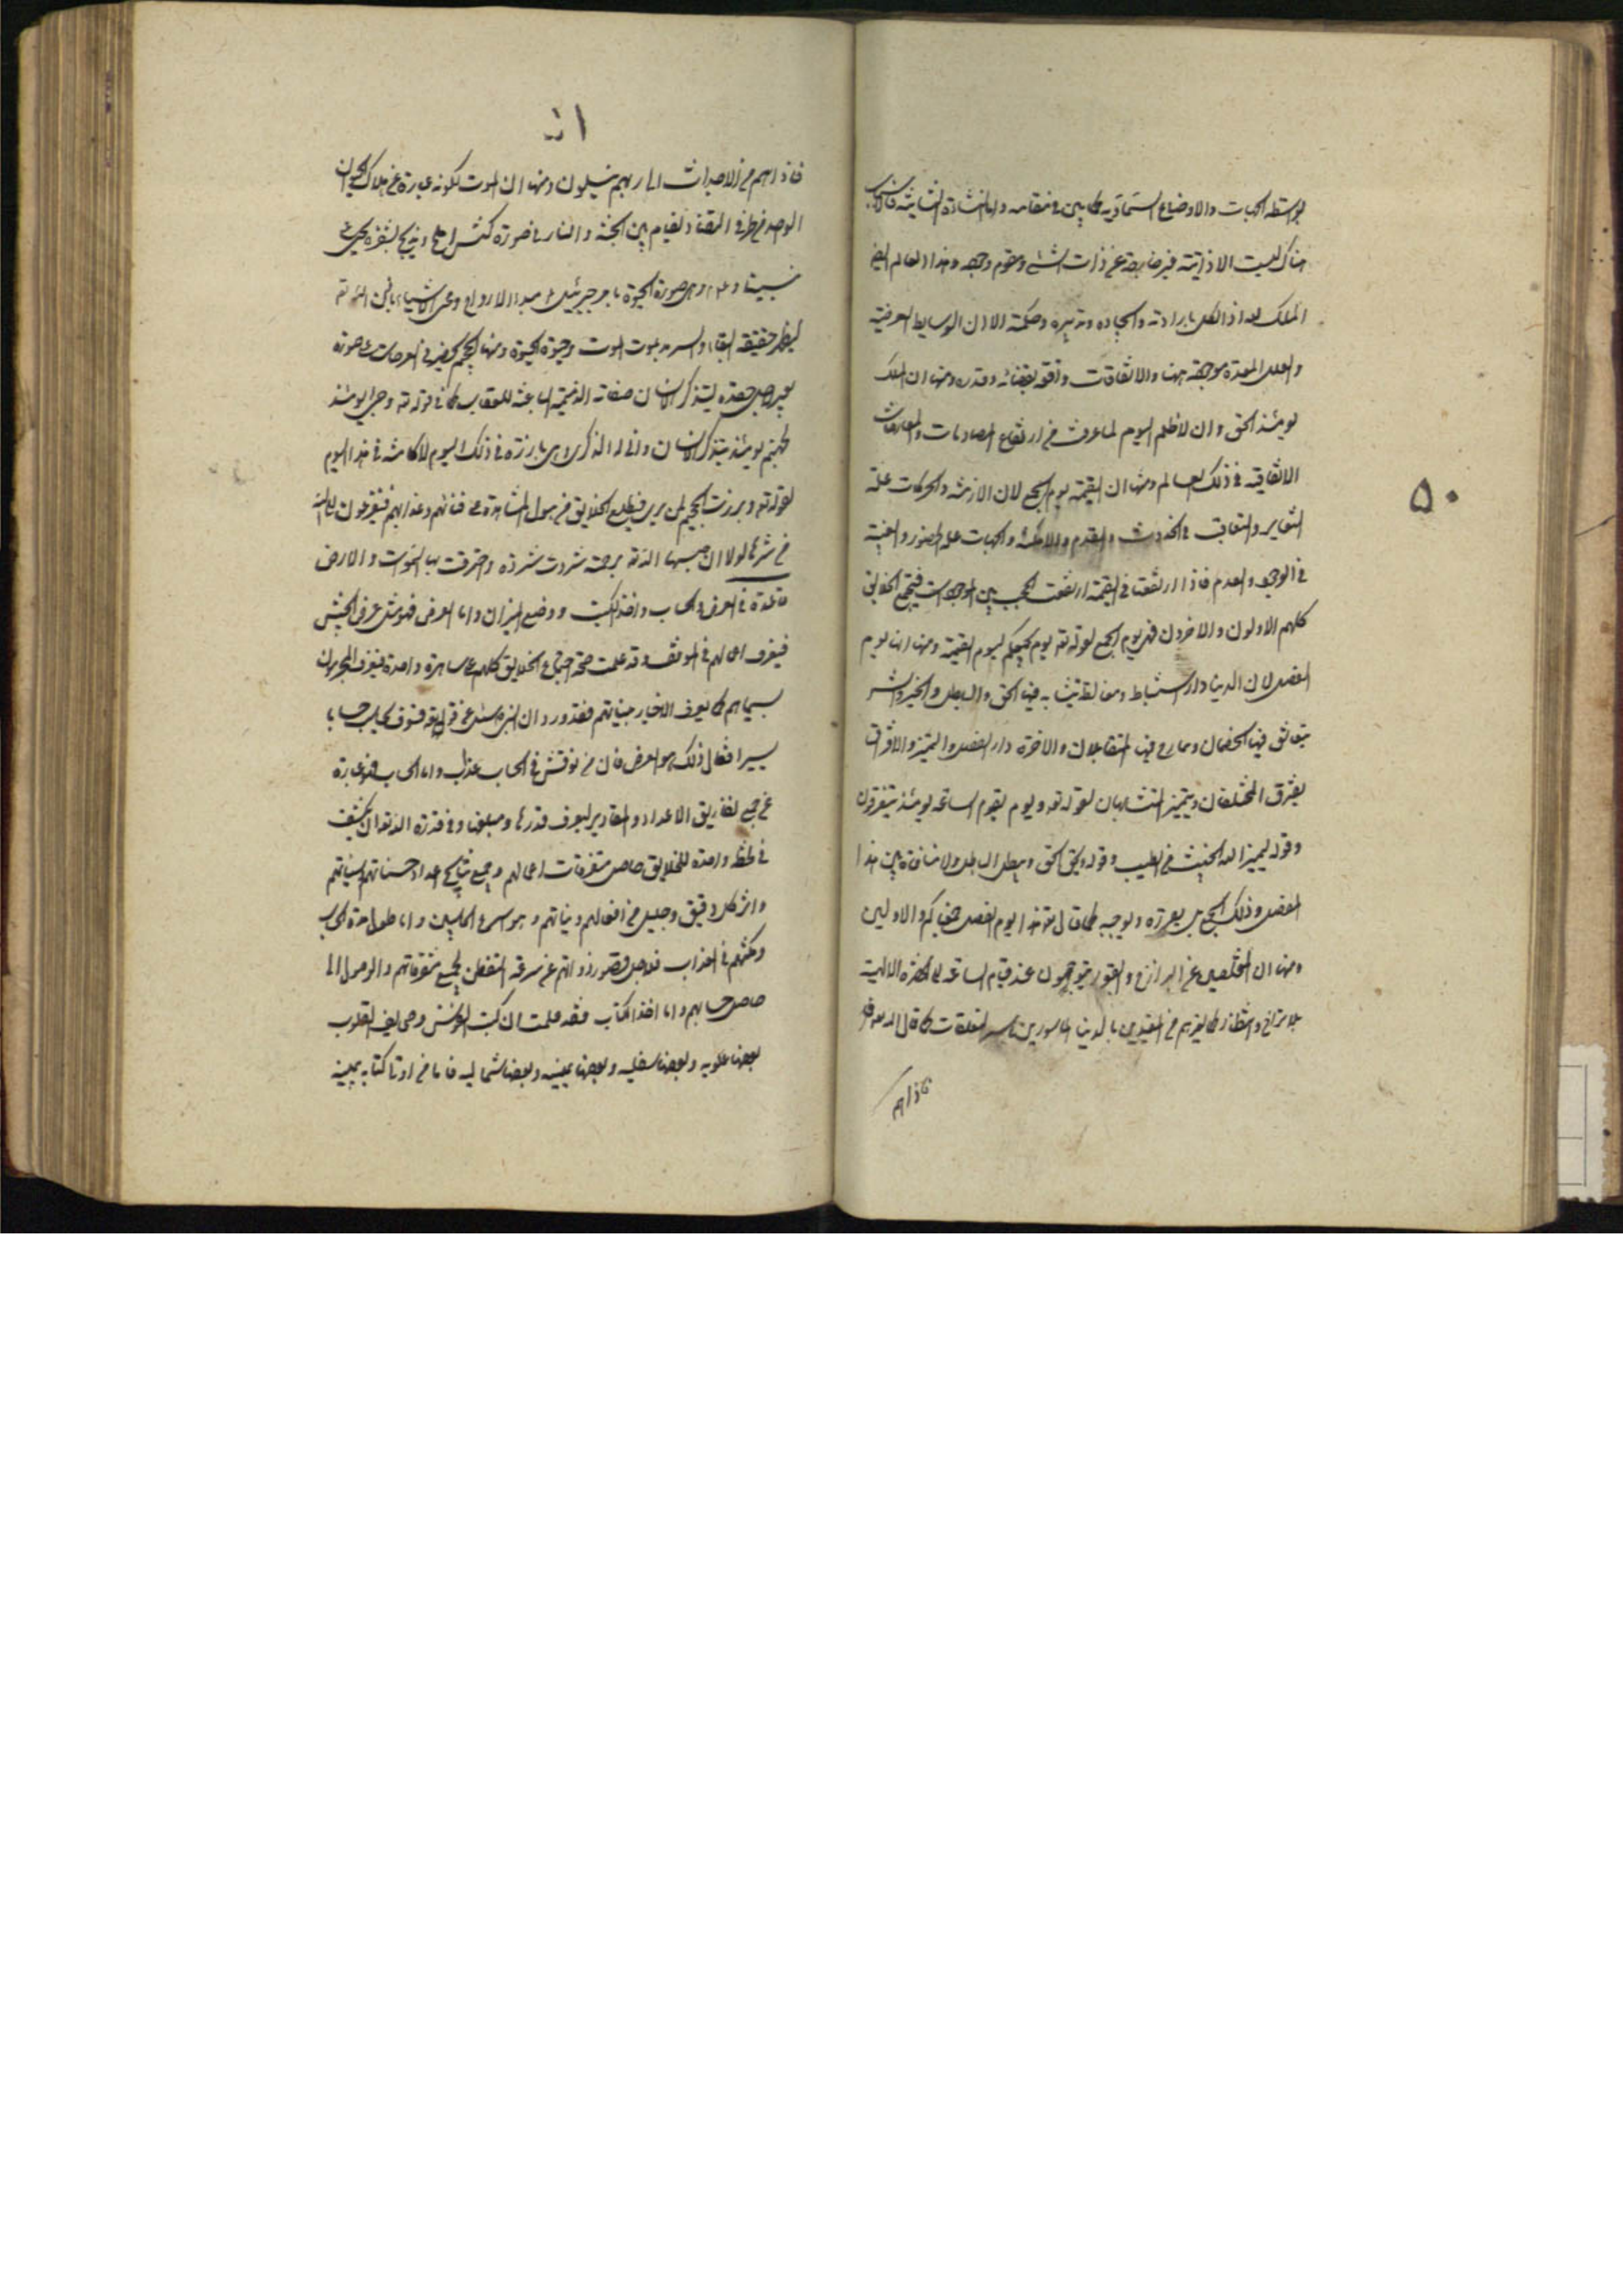 ۵۰
بواسطة الجهات والاوضاع السماوية كما بين في مقامه واما النشاءة الثانية فالاسباب
هناك ليست الا ذاتية غير خارجة عن ذات الشئ ومقوم وجوده وهذا العالم ايضا
الملك لله اذ الكل بارادته وايجاده وتدبيره وحكمته الا ان الوسايط العرضية
والعلل المعدة موجودة ههنا والاتفاقات واقعة بقضائه وقدره ومنها ان الملك
يومئذ الحق وان لا ظلم اليوم لما عرفت من ارتفاع المصادمات والمعارضات
الاتفاقية في ذلك العالم ومنها ان القيمة يوم الجمع لان الازمنة والحركات علة
التغاير والتعاقب في الحدوث والقدم والامكنة والجهات علة الحضور والغيبة
في الوجود والعدم فاذا ارتفعتا في القيمة ارتفعت الحجب بين الموجودات فيجتمع الخلايق
كلهم الاولون والاخرون فهي يوم الجمع لقوله ته يوم يجمعكم ليوم القيمة ومنها انها يوم
الفصل لان الدينا دار اشتباط ومغالطة يتشابه فيها الحق والباطل والخير والشر
يتعانق فيها الخصمان ويمازج فيها المتقابلان والاخرة دار الفصل والتميز والافتراق
يفترق المختلفان ويتميز المتشابهان لقوله ته ويوم يقوم الساعة يومئذ يتفرقون
وقوله ليميز الله الخبيث من الطيب وقوله يحق الحق ويبطل الباطل ولا منافاة بين هذا
الفصل وذلك الجمع بل يقرره ويوجبه كما قال ته هذا يوم الفصل جمعناكم والاولين
ومنها ان المخلصين عن البرازخ والقبور يتوجهون عند قيام الساعة الى الحضرة الالهية
بلا تراخ وانتظار كما لغيرهم من المقيدين بالدنيا الماسورين باسر التعلقات كما قال الله ته
فاذا هم
۵۱
فاذا هم من الاجداث الى ربهم ينسلون ومنها ان الموت لكونه عبارة عن هلاك الحيوان
الواحد في طرفى التضاد تقام بين الجنة والنار في صورة كبش املح ويذبح بشفرة يحيى
نبينا وعم وهى صورة الحيوة بامر جبرئيل مبداء الارواح ومحى الاشياء باذن الله ته
ليظهر حقيقة البقاء والسرمد بموت الموت وحيوة الحيوة ومنها الجحيم يحضر في العرصات على صورة
بعير ليتذكر الانسان صفاته الذميمة الباعثة للعقاب كما في قوله ته وجئ يومئذ
بجهنم يومئذ يتذكر الانسان وانى له الذكرى وهى بارزة في ذلك اليوم لا كامنة في هذا اليوم
لقوله ته وبرزت الجحيم لمن يرى فيطلع الخلايق من هول المشاهدة على فنائهم وعذابهم فيفزعون الى الله
من شرها لولا ان حبسها الله ته برحمته شردت شردة واحترقت بها السموات والارض
قاعدة في العرض والحساب واخذ الكتب ووضع الميزان واما العرض فهو مثل عرض الجيش
فيعرف اعمالهم في الموقف وقد علمت صحة اجتماع الخلايق كلهم على ساهرة واحدة فيعرف المجرمون
بسيماهم كما يعرف الاخيار بسيماهم فقد ورد ان النبى ص سئل عن قوله ته فسوف يحاسب حسابا
يسيرا فقال ذلك هو العرض فان من نوقش في الحساب عذب واما الحساب فهو عبارة
عن جمع تفاريق الاعداد والمقادير ليعرف قدرها ومبلغها وفي قدرة الله ته ان يكشف
في لحظة واحدة للخلايق حاصل متفرقات اعمالهم وجميع نتايج اعداد حسناتهم وسيئاتهم
واثر كل دقيق وجليل من افعالهم ونياتهم وهو اسرع الحاسبين واما طول مدة الحساب
ومكثهم في العذاب فلاجل قصور ذواتهم عن سرعة التفطن لجمع متفرقاتهم والوصول الى
حاصل حسابهم واما اخذ الكتاب فقد علمت ان كتب النفوس وصحايف القلوب
بعضها علوية وبعضها سفلية وبعضها يمينية وبعضها شمالية فاما من اوتى كتابه بيمينه